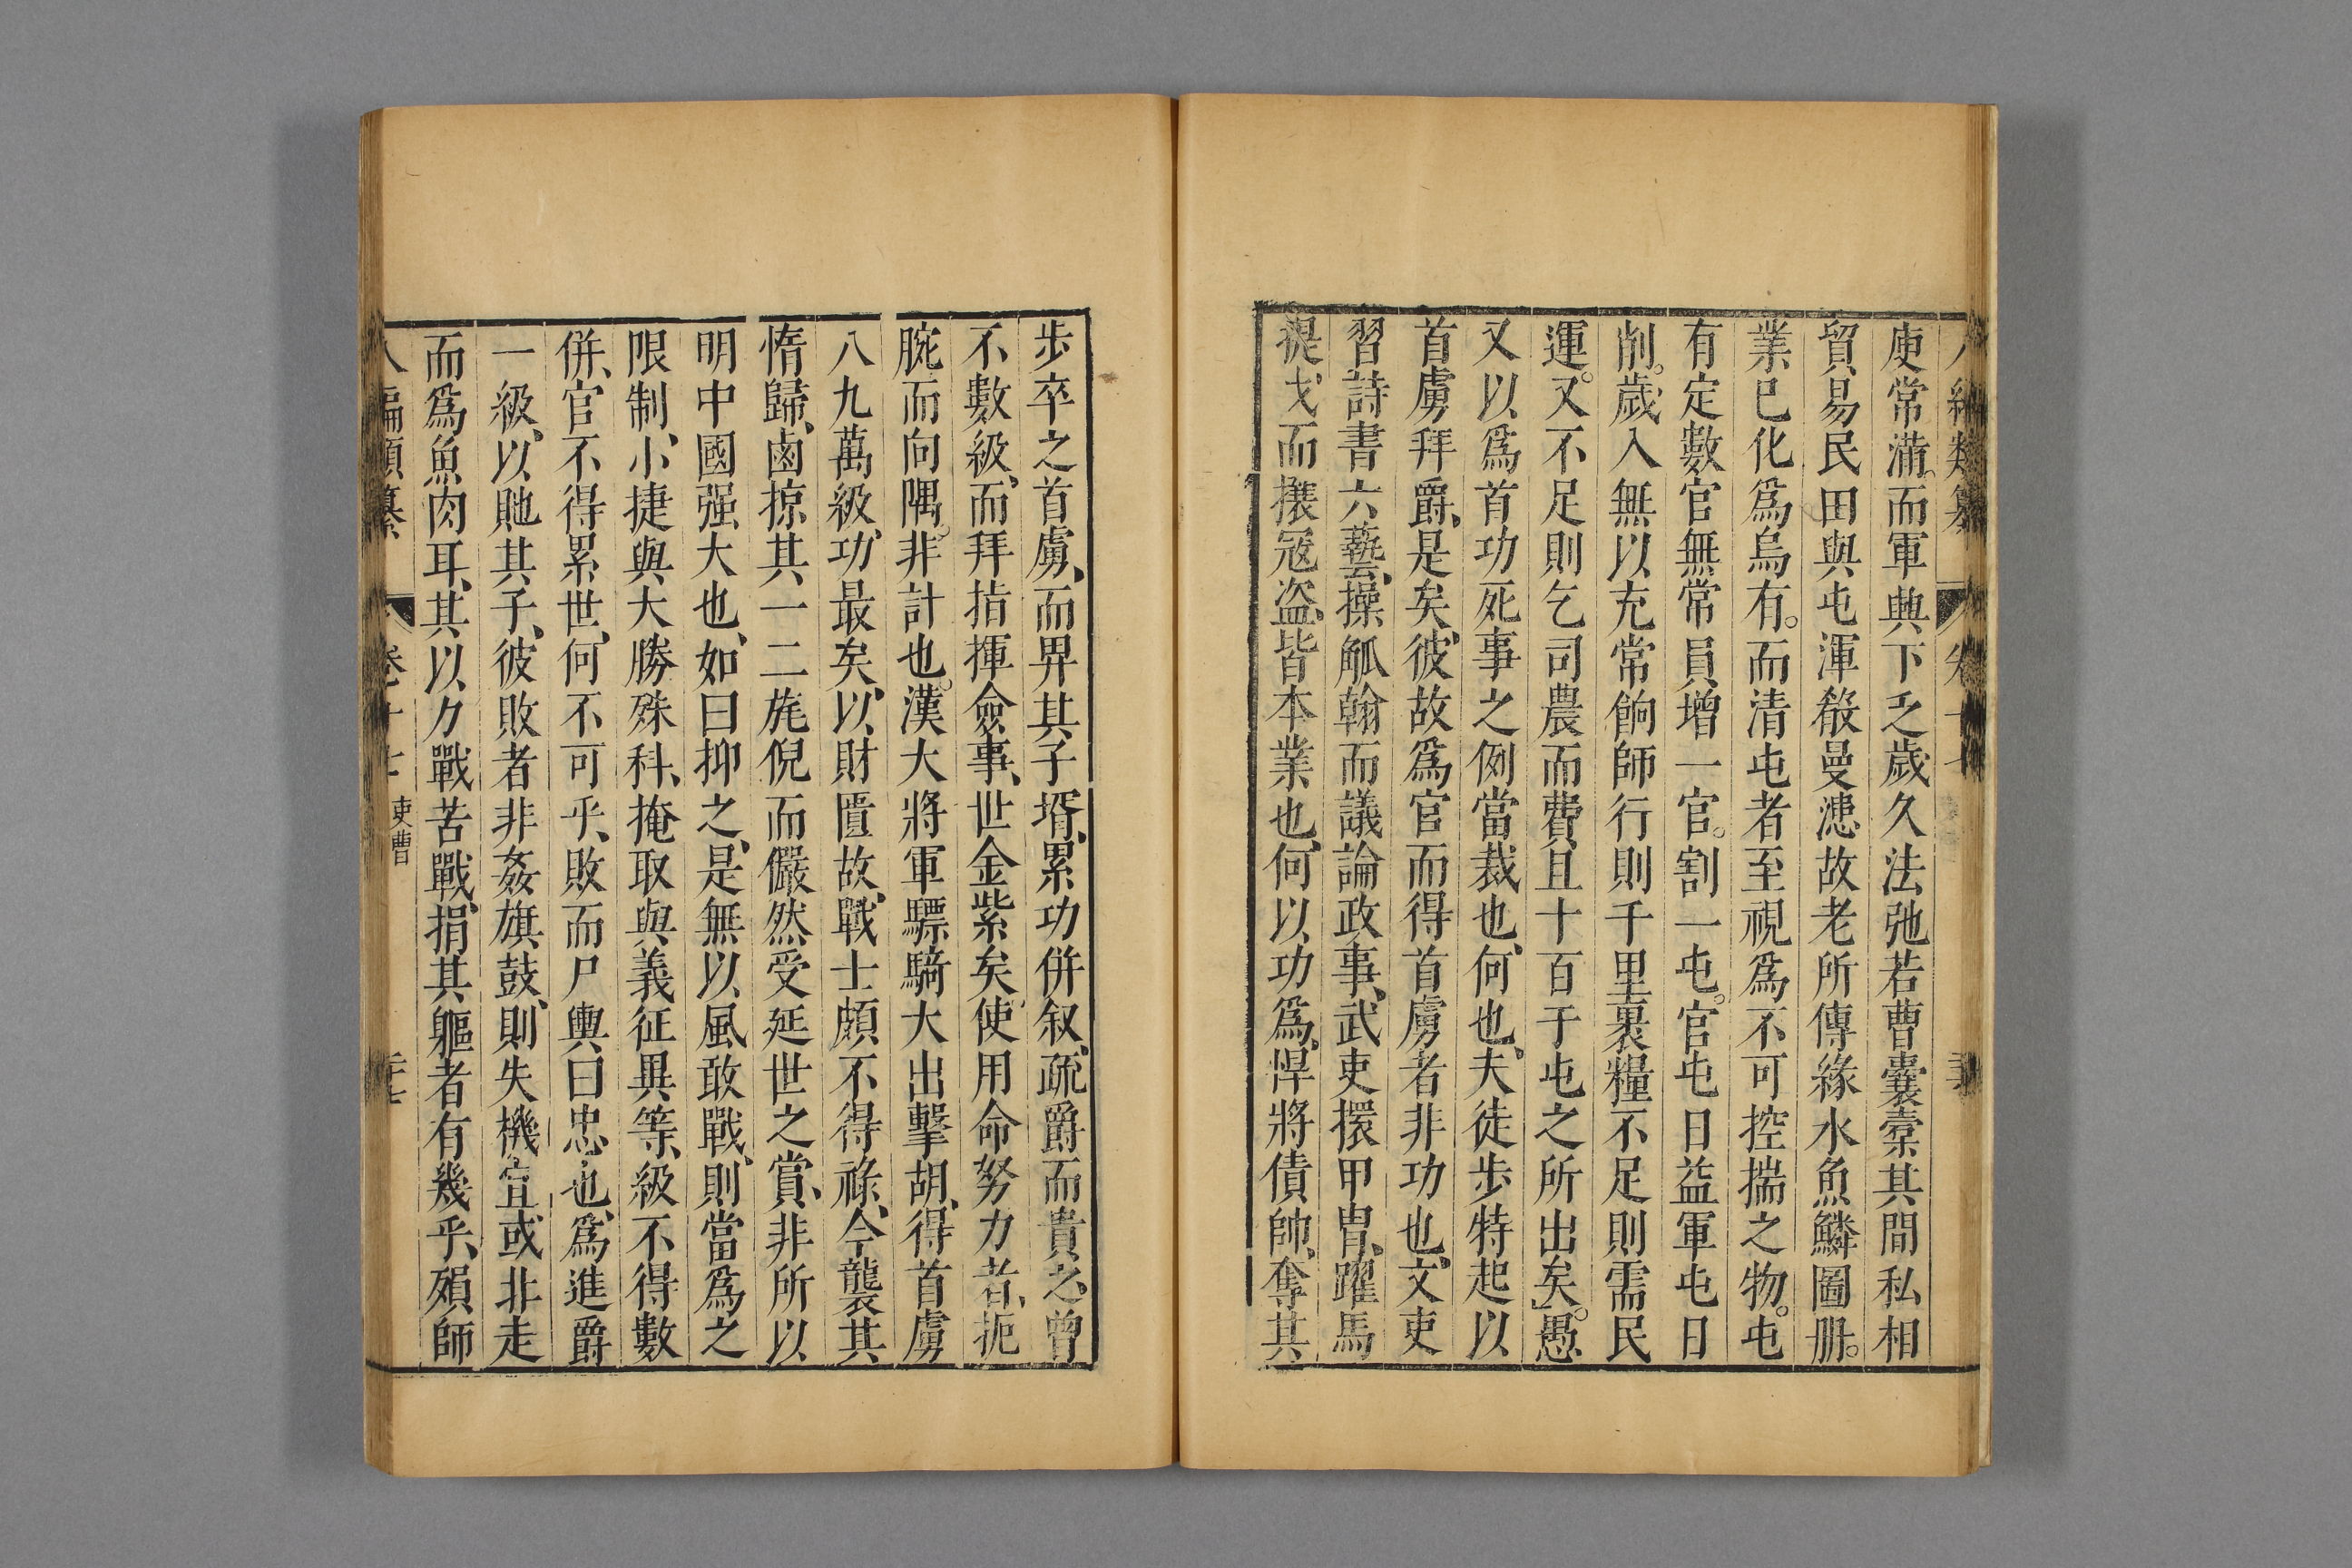 庾常滿。而軍興下乏歲久法弛若曹囊槖其間私相
貿易民田與屯渾殽曼漶故老所傳緣水魚鱗圖册。
業已化為烏有。而清屯者至視為不可控揣之物。屯
有定數官無常員增一官。割一屯。官屯日益軍屯日
削。歲入無以充常餉師行則千里裹糧不足則需民
運。又不足則乞司農而費且十百于屯之所出矣。愚
又以為首功死事之例當裁也、何也、夫徒步特起以
首虜拜爵、是矣、彼故為官而得首虜者非功也、文吏
習詩書六藝、操觚翰而議論政事、武吏擐甲胄、躍馬
提戈而攘寇盜、皆本業也、何以功為、悍將債帥、奪其
步卒之首虜、而畀其子壻、累功併叙、疏爵而貴之、曾
不數級、而拜指揮僉事、世金紫矣、使用命努力者、扼
腕而向隅。非計也。漢大將軍驃騎大出擊胡、得首虜
八九萬級、功最矣、以財匱故、戰士頗不得祿、今襲其
惰歸、鹵掠其一二旄倪而儼然受延世之賞、非所以
明中國强大也、如曰抑之、是無以風敢戰、則當為之
限制、小捷與大勝殊科、掩取與義征異等、級不得數
併、官不得累世、何不可乎、敗而尸輿、曰忠也、為進爵
一級、以貤其子、彼敗者非姦旗鼓、則失機宜、或非走
而為魚肉耳、其以力戰苦戰、捐其軀者有幾乎、殞師
八編類纂 卷十七 吏曹 三十七